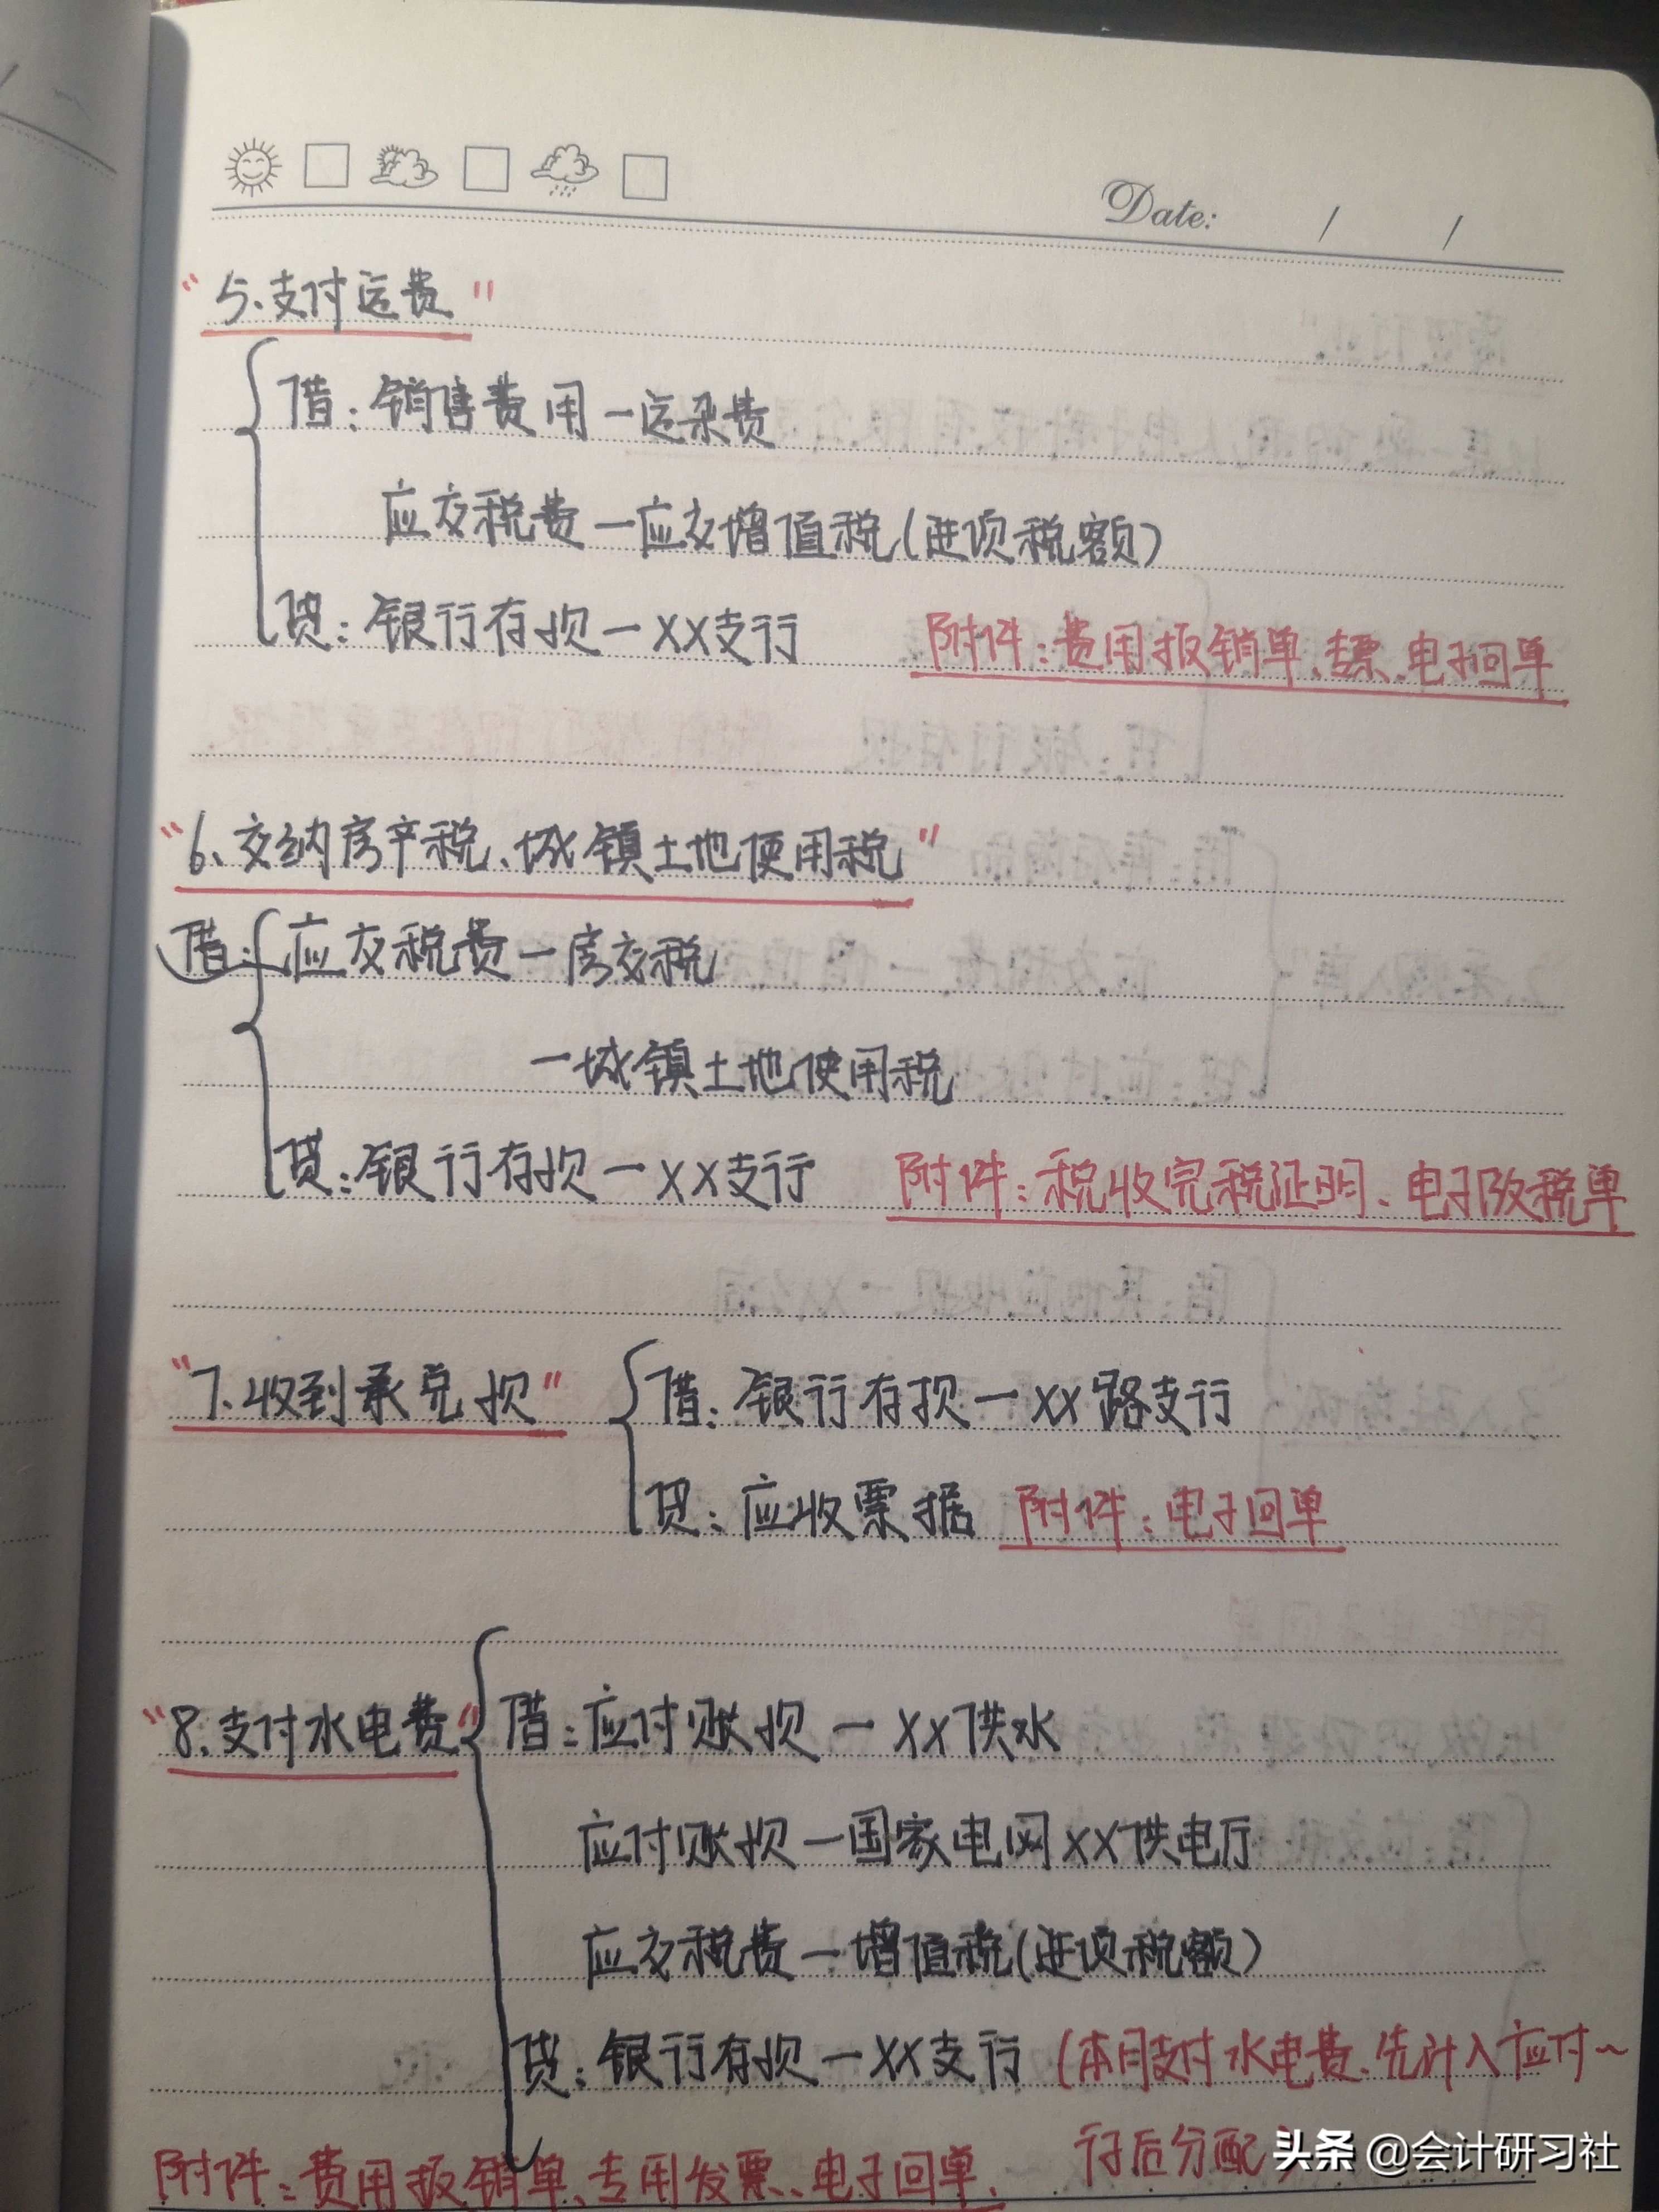 Date: / /
"5、支付运费"
借：销售费用一运杂费
应交税费一应交增值税(进项税额)
贷：银行存款一XX支行 附件：费用报销单、专票、电子回单
"6、交纳房产税、城镇土地使用税"
借：应交税费一房交税
一城镇土地使用税
贷：银行存款一XX支行 附件：税收完税证明、电子缴税单
"7、收到承兑款" 借：银行存款一XX路支行
贷：应收票据 附件：电子回单
"8、支付水电费" 借：应付账款一XX供水
应付账款一国家电网XX供电厅
应交税费一增值税(进项税额)
贷：银行存款一XX支行 (本月支付水电费、先计入应付~
附件：费用报销单、专用发票、电子回单、 后分配
头条 @会计研习社